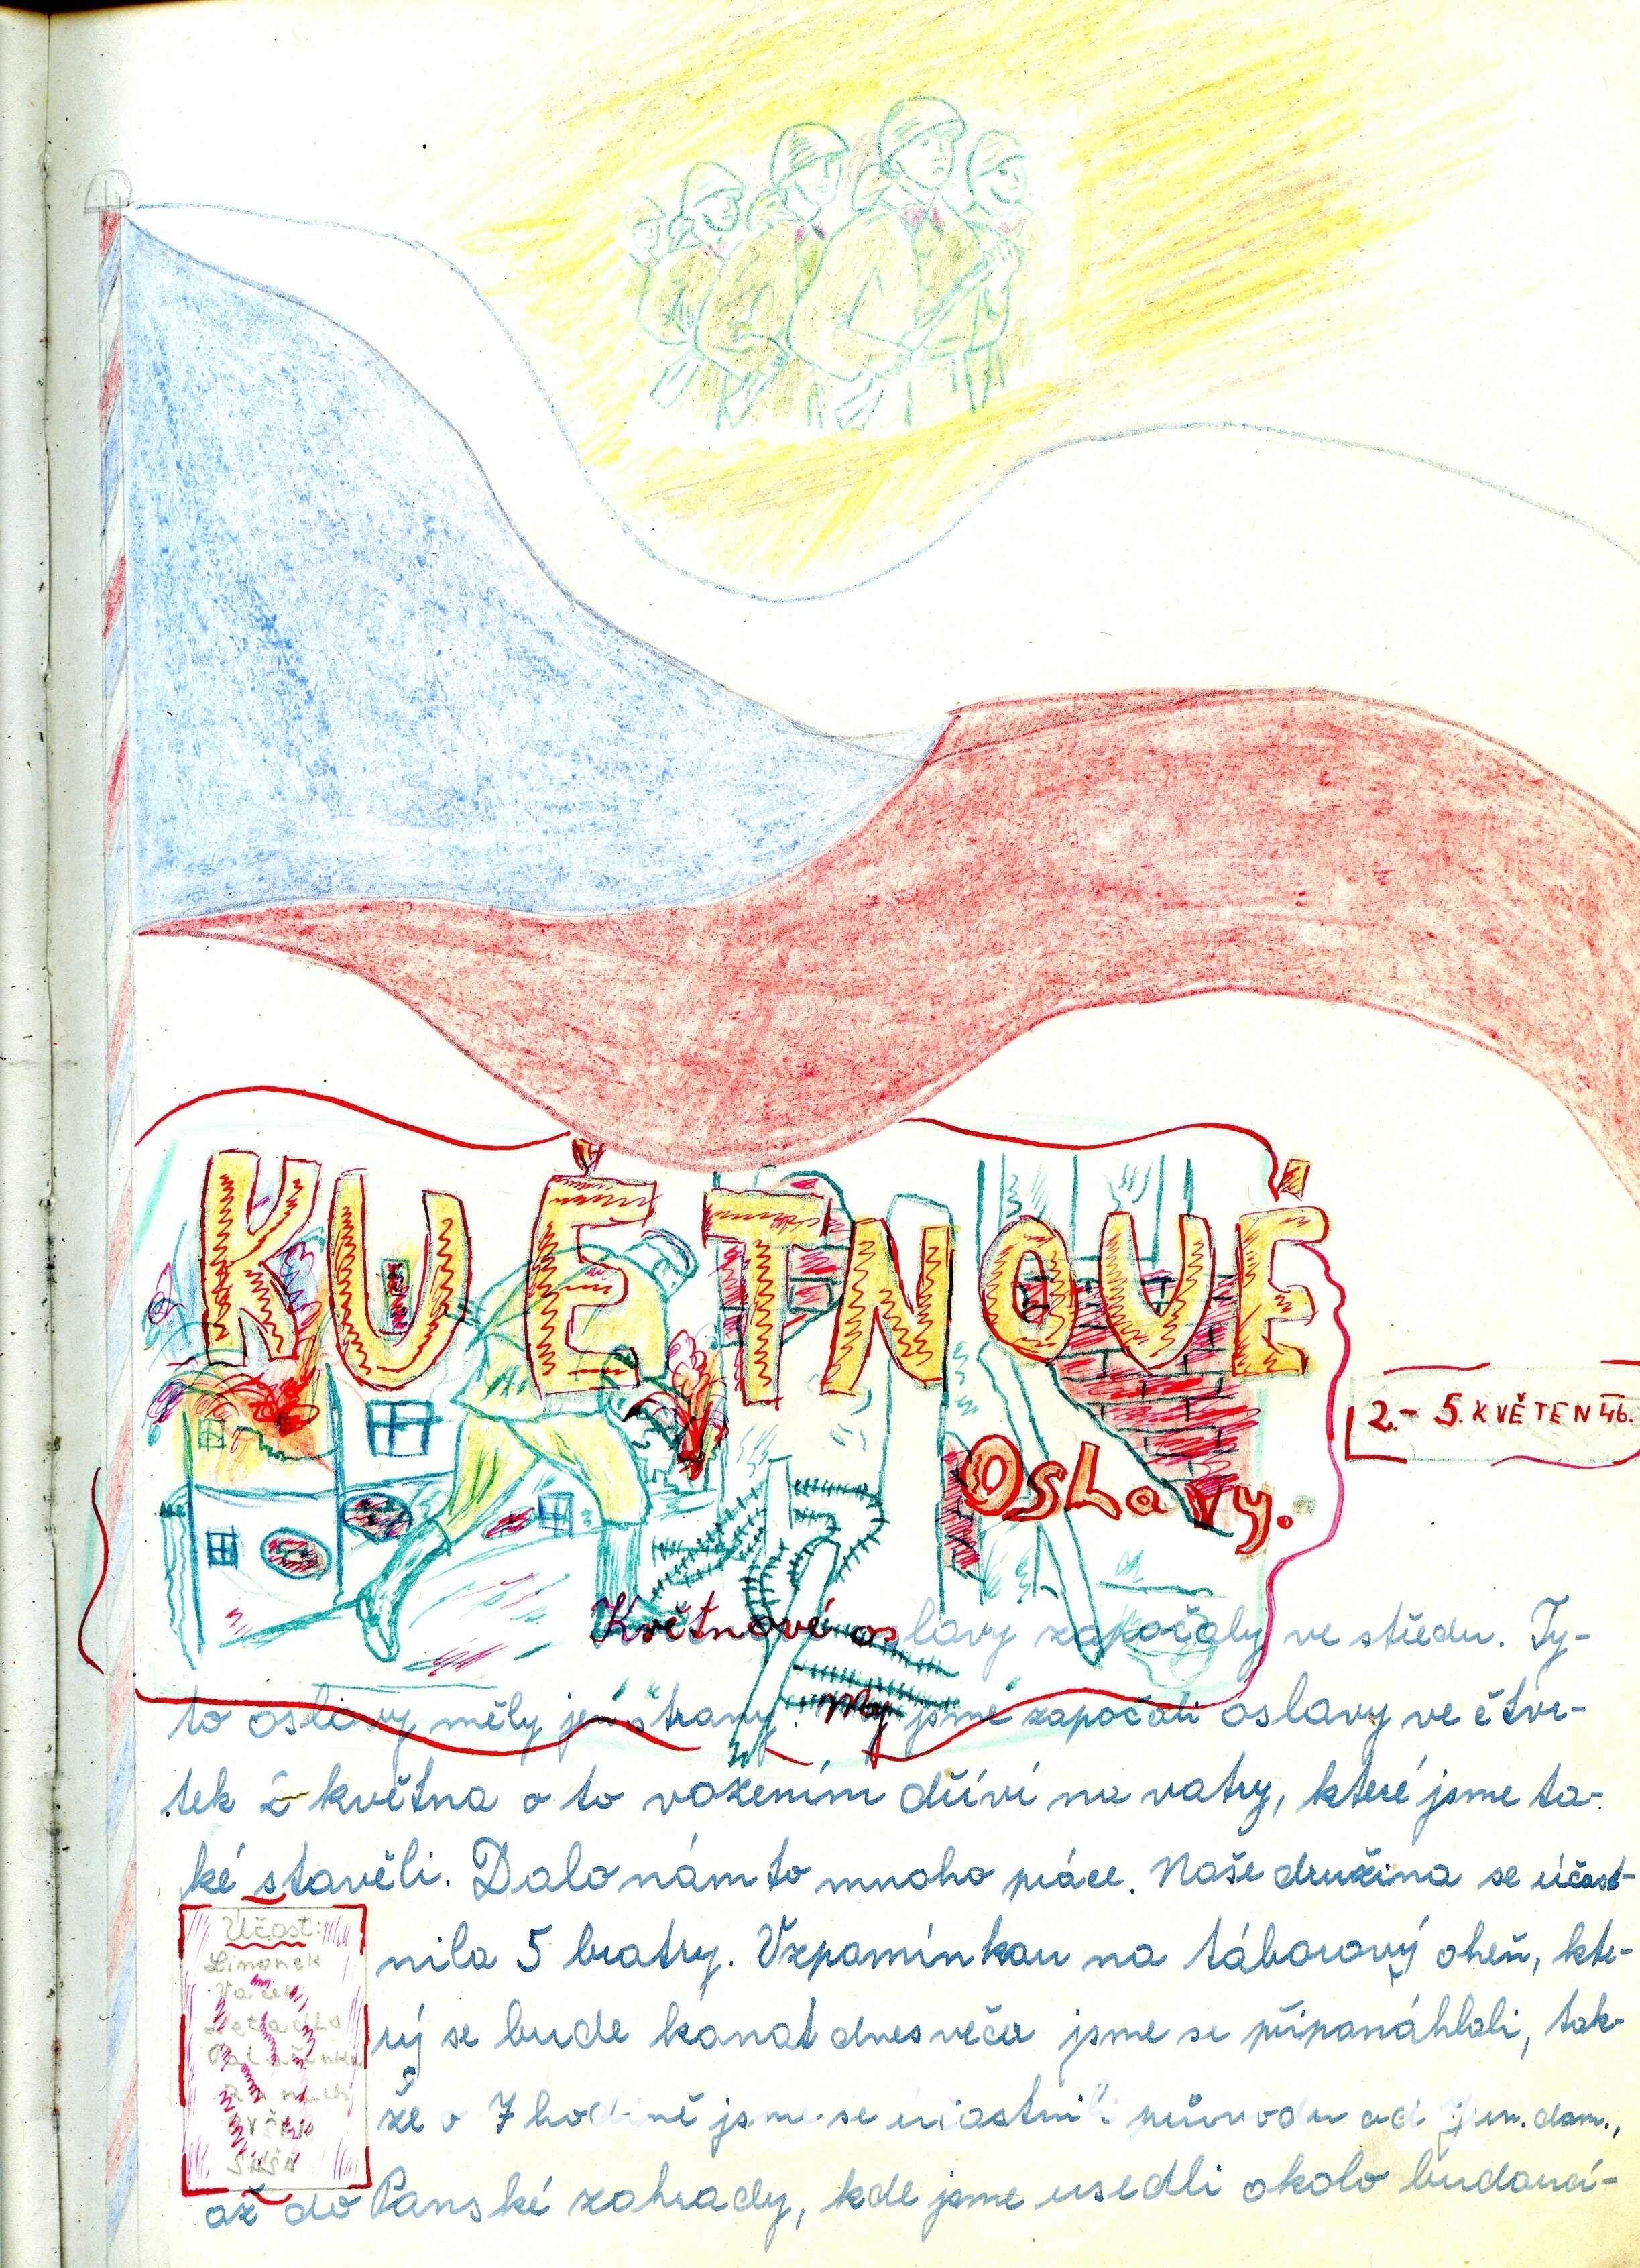 KVĚTNOVÉ
OSLAVY.
2.- 5. KVĚTEN 46.
Květnové oslavy započaly ve středu. Ty-
to oslavy měly jen strany. My jsme započali oslavy ve čtvr-
tek 2 května a to vožením dříví na vatry, které jsme ta-
ké stavěli. Dalo nám to mnoho práce. Naše družina se účast-
nila 5 bratry. Vzpomínkou na táborový oheň, kte-
rý se bude konat dnes večer jsme se připonáhlali, tak-
že o 7 hodině jsme se účastnili průvodu od Jun. dom.,
až do Panské zahrady, kde jsme usedli okolo budoucí-
Účast:
Limonek
Vašek
Letadlo